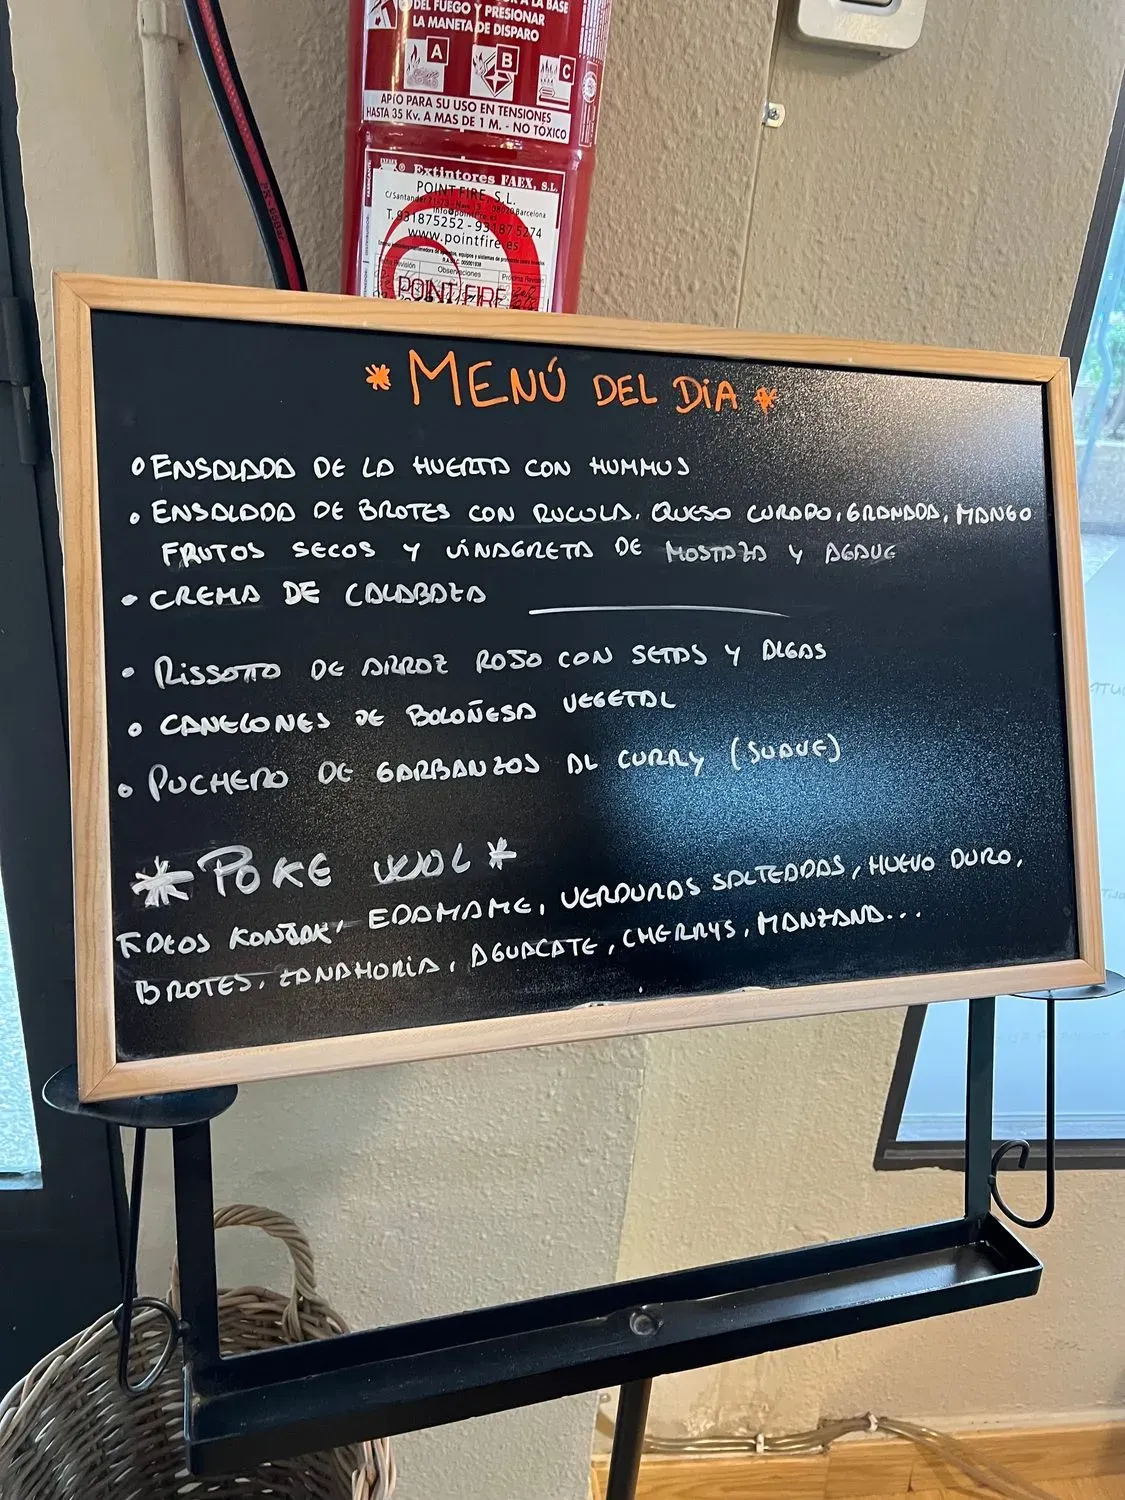 R A LA BASE
DEL FUEGO Y PRESIONAR
LA MANETA DE DISPARO
A B C
APTO PARA SU USO EN TENSIONES
HASTA 35 Kv. A MAS DE 1 M. - NO TOXICO
Extintores FAEX, S.L.
POINT FIRE, S.L.
C/Santander
Barcelona
info@pointfire.es
T.931875252 - 931875274
www.pointfire.es
Observaciones
POINT FIRE
* MENÚ DEL DiA *
ENSALADA DE LA HUERTA CON HUMMUS
ENSALADA DE BROTES CON RUCULA, QUESO CURADO, GRANADA, MANGO
FRUTOS SECOS Y VINAGRETA DE MOSTAZA Y AGAVE
CREMA DE CALABAZA
RISSOTTO DE ARROZ ROJO CON SETAS Y ALGAS
CANELONES DE BOLOÑESA VEGETAL
PUCHERO DE GARBANZOS AL CURRY (SUAVE)
* POKE WOL *
FIDEOS KONJAK, EDAMAME, VERDURAS SALTEADAS, HUEVO DURO,
BROTES, ZANAHORIA, AGUACATE, CHERRYS, MANZANA...